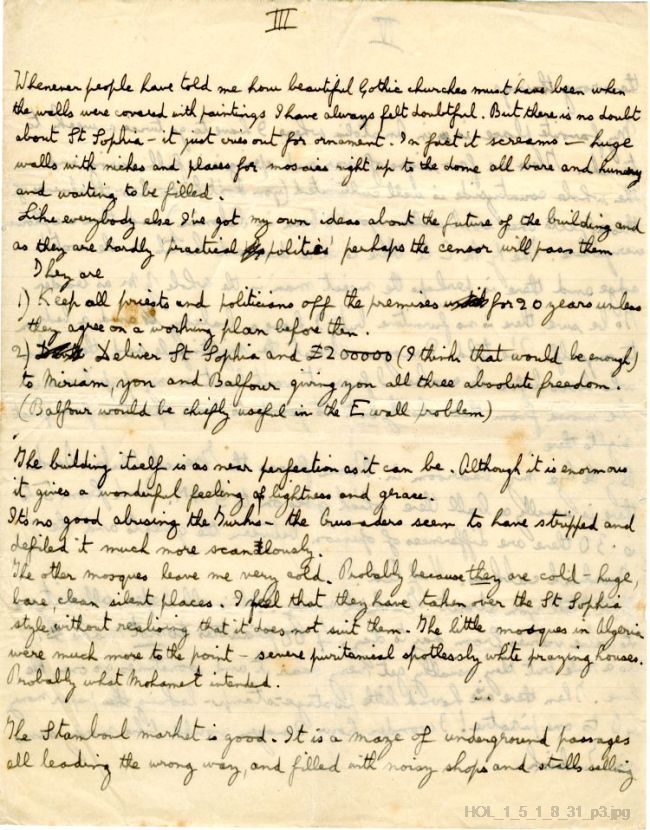 III
Whenever people have told me how beautiful Gothic churches must have been when
the walls were covered with paintings I have always felt doubtful. But there is no doubt
about St Sophia - it just cries out for ornament. In fact it screams - huge
walls with niches and places for mosaics right up to the dome all bare and hungry
and waiting to be filled.
Like everybody else I've got my own ideas about the future of the building and
as they are hardly practical politics' perhaps the censor will pass them
They are
1) Keep all priests and politicians off the premises for 20 years unless
they agree on a working plan before then.
2) Deliver St Sophia and £200000 (I think that would be enough)
to Miriam, you and Balfour giving you all three absolute freedom.
(Balfour would be chiefly useful in the E wall problem)
The building itself is as near perfection as it can be. Although it is enormous
it gives a wonderful feeling of lightness and grace.
Its no good abusing the Turks - the Crusaders seem to have stripped and
defiled it much more scantlously.
The other mosques leave me very cold. Probably because they are cold - huge,
bare, clean silent places. I feel that they have taken over the St Sophia
style without realising that it does not suit them. The little mosques in Algeria
were much more to the point - severe puritanical spotlessly white praying houses.
Probably what Mohamet intended.
The Stamboul market is good. It is a maze of underground passages
all leading the wrong way, and filled with noisy shops and stalls selling
HOL_1_5_1_8_31_p3.jpg